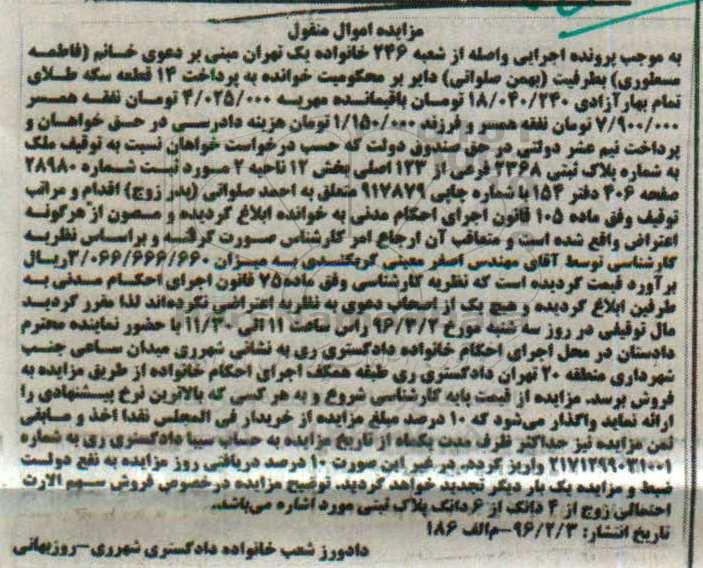 مزایده اموال منقول
به موجب پرونده اجرایی واصله از شعبه ۲۴۶ خانواده یک تهران مبنی بر دعوی خانم (فاطمه
مسطوری) بطرفیت (بهمن صلواتی) دایر بر محکومیت خوانده به پرداخت ۱۴ قطعه سکه طلای
تمام بهار آزادی ۱۸/۰۴۰/۲۴۰ تومان باقیمانده مهریه ۴/۰۲۵/۰۰۰ تومان نفقه همسر
۷/۹۰۰/۰۰۰ تومان نفقه همسر و فرزند ۱/۱۵۰/۰۰۰ تومان هزینه دادرسی در حق خواهان و
پرداخت نیم عشر دولتی در حق صندوق دولت که حسب درخواست خواهان نسبت به توقیف ملک
به شماره پلاک ثبتی ۳۳۶۸ فرعی از ۱۲۳ اصلی بخش ۱۲ ناحیه ۲ مورد ثبت شماره ۲۸۹۸۰
صفحه ۴۰۶ دفتر ۱۵۴ با شماره چاپی ۹۱۷۸۷۹ متعلق به احمد صلواتی (پدر زوج) اقدام و مراتب
توقیف وفق ماده ۱۰۵ قانون اجرای احکام مدنی به خوانده ابلاغ گردیده و مصون از هرگونه
اعتراض واقع شده است و متعاقب آن ارجاع امر کارشناس صورت گرفته و براساس نظریه
کارشناسی توسط آقای مهندس اصغر معینی به میزان ۳/۰۶۶/۶۶۶/۶۶۰ریال
برآورد قیمت گردیده است که نظریه کارشناسی وفق ماده۷۵ قانون اجرای احکام مدنی به
طرفین ابلاغ گردیده و هیچ یک از اصحاب دعوی به نظریه اعتراضی نکرده‌اند لذا مقرر گردید
مال توقیفی در روز سه شنبه مورخ ۹۶/۳/۲ راس ساعت ۱۱ الی ۱۱/۳۰ با حضور نماینده محترم
دادستان در محل اجرای احکام خانواده دادگستری ری به نشانی شهرری میدان ساعی جنب
شهرداری منطقه ۲۰ تهران دادگستری ری طبقه همکف اجرای احکام خانواده از طریق مزایده به
فروش برسد. مزایده از قیمت پایه کارشناسی شروع و به هر کسی که بالاترین نرخ پیشنهادی را
ارائه نماید واگذار می‌شود که ۱۰ درصد مبلغ مزایده از خریدار فی المجلس نقدا اخذ و مابقی
ثمن مزایده نیز حداکثر ظرف مدت یکماه از تاریخ مزایده به حساب سیبا دادگستری ری به شماره
۲۱۷۱۲۹۹۰۲۱۰۰۱ واریز گردد. در غیر این صورت ۱۰ درصد دریافتی روز مزایده به نفع دولت
ضبط و مزایده یک بار دیگر تجدید خواهد گردید. توضیح مزایده درخصوص فروش سهم الارث
احتمالی زوج از ۴ دانگ از ۶ دانگ پلاک ثبتی مورد اشاره می‌باشد.
تاریخ انتشار: ۹۶/۲/۳-م‌الف ۱۸۶
دادورز شعب خانواده دادگستری شهرری-روزبهانی